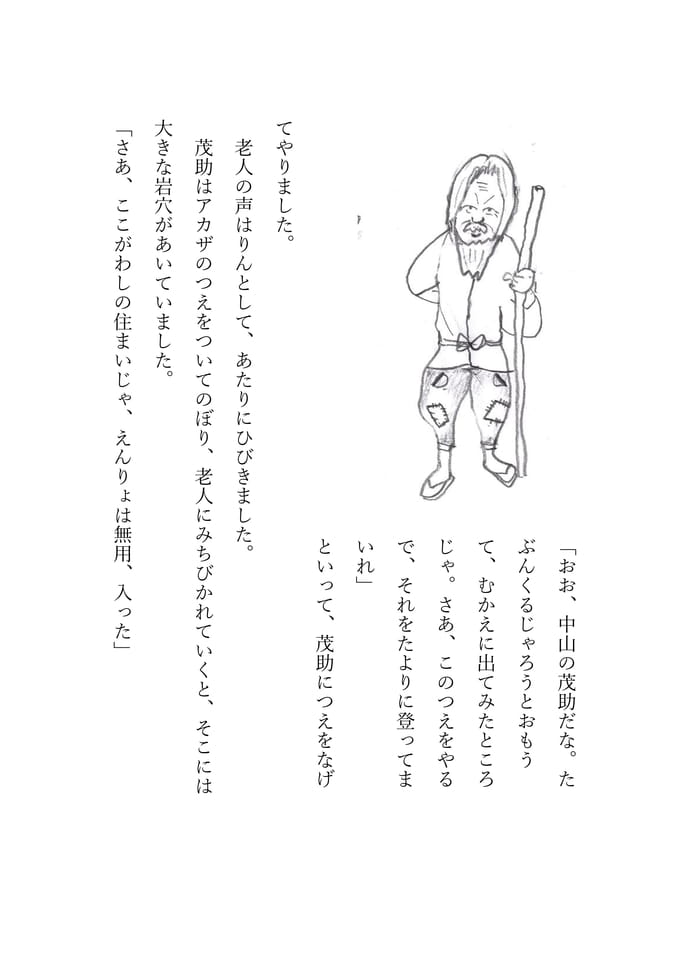 「おお、中山の茂助だな。た
ぶんくるじゃろうとおもう
て、むかえに出てみたところ
じゃ。さあ、このつえをやる
で、それをたよりに登ってま
いれ」
といって、茂助につえをなげ
てやりました。
老人の声はりんとして、あたりにひびきました。
茂助はアカザのつえをついてのぼり、老人にみちびかれていくと、そこには
大きな岩穴があいていました。
「さあ、ここがわしの住まいじゃ、えんりょは無用、入った」